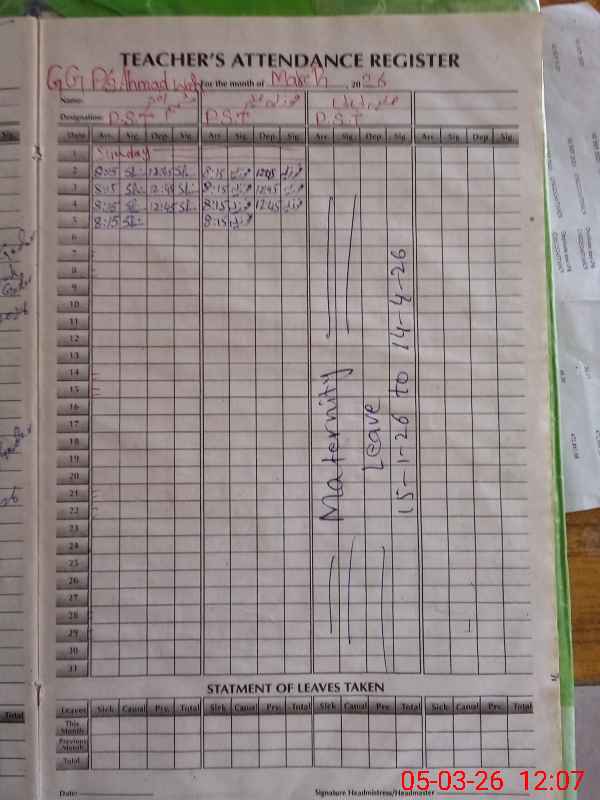 TEACHER'S ATTENDANCE REGISTER
GGPS Ahmad For the month of March, 2026
Name:
Designation: P.S.T P.S.T P.S.T
Date Arr. Sig. Dep. Sig. Arr. Sig. Dep. Sig. Arr. Sig. Dep. Sig. Arr. Sig. Dep. Sig.
1 Sunday
2 8:15 12:45 8:15 12:45
3 8:15 12:45 8:15 12:45
4 8:15 12:45 8:15 12:45
5 8:15 8:15
6
7
8
9
10
11
12
13
14
15
16
17
18
19
20
21
22
23
24
25
26
27
28
29
30
31
Maternity
Leave
15-1-26 to 14-4-26
STATMENT OF LEAVES TAKEN
Leaves Sick Casual Prv. Total Sick Casual Prv. Total Sick Casual Prv. Total Sick Casual Prv. Total
This Month
Previous Month
Total
Date: Signature Headmistress/Headmaster
Sig.
Total
05-03-26 12:07